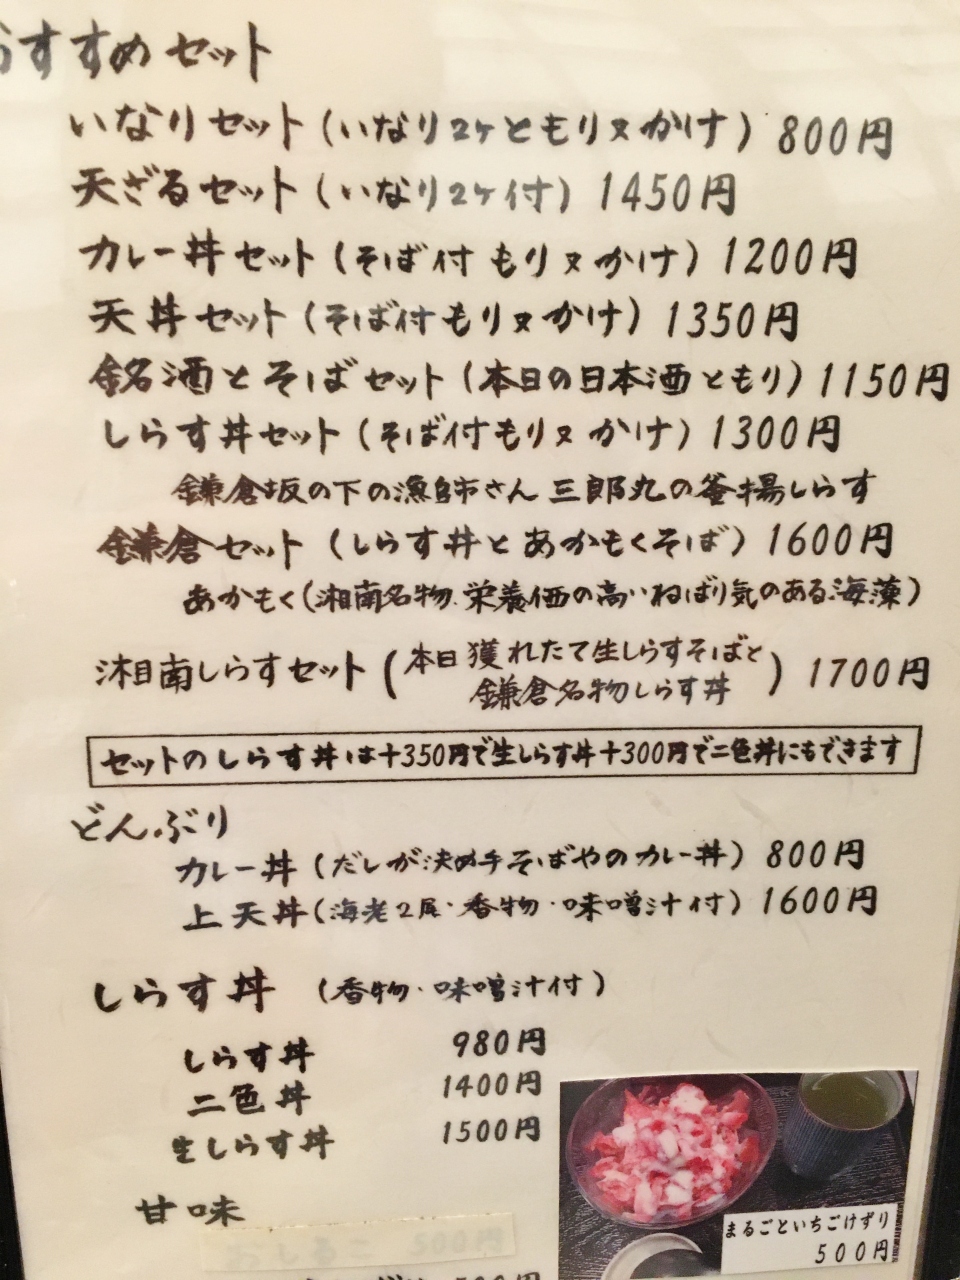 おすすめセット
いなりセット(いなり2ヶともり又かけ) 800円
天ざるセット(いなり2ヶ付) 1450円
カレー丼セット(そば付もり又かけ) 1200円
天丼セット(そば付もり又かけ) 1350円
銘酒とそばセット(本日の日本酒ともり) 1150円
しらす丼セット(そば付もり又かけ) 1300円
鎌倉坂の下の漁師さん 三郎丸の釜揚しらす
鎌倉セット(しらす丼とあかもくそば) 1600円
あかもく(湘南名物、栄養価の高いねばり気のある海藻)
湘南しらすセット(本日獲れたて生しらすそばと
鎌倉名物しらす丼) 1700円
セットのしらす丼は+350円で生しらす丼+300円で二色丼にもできます
どんぶり
カレー丼(だしが決め手そばやのカレー丼) 800円
上天丼(海老2尾・香物・味噌汁付) 1600円
しらす丼 (香物・味噌汁付)
しらす丼 980円
二色丼 1400円
生しらす丼 1500円
甘味
おしるこ 500円
まるごといちごけずり
500円